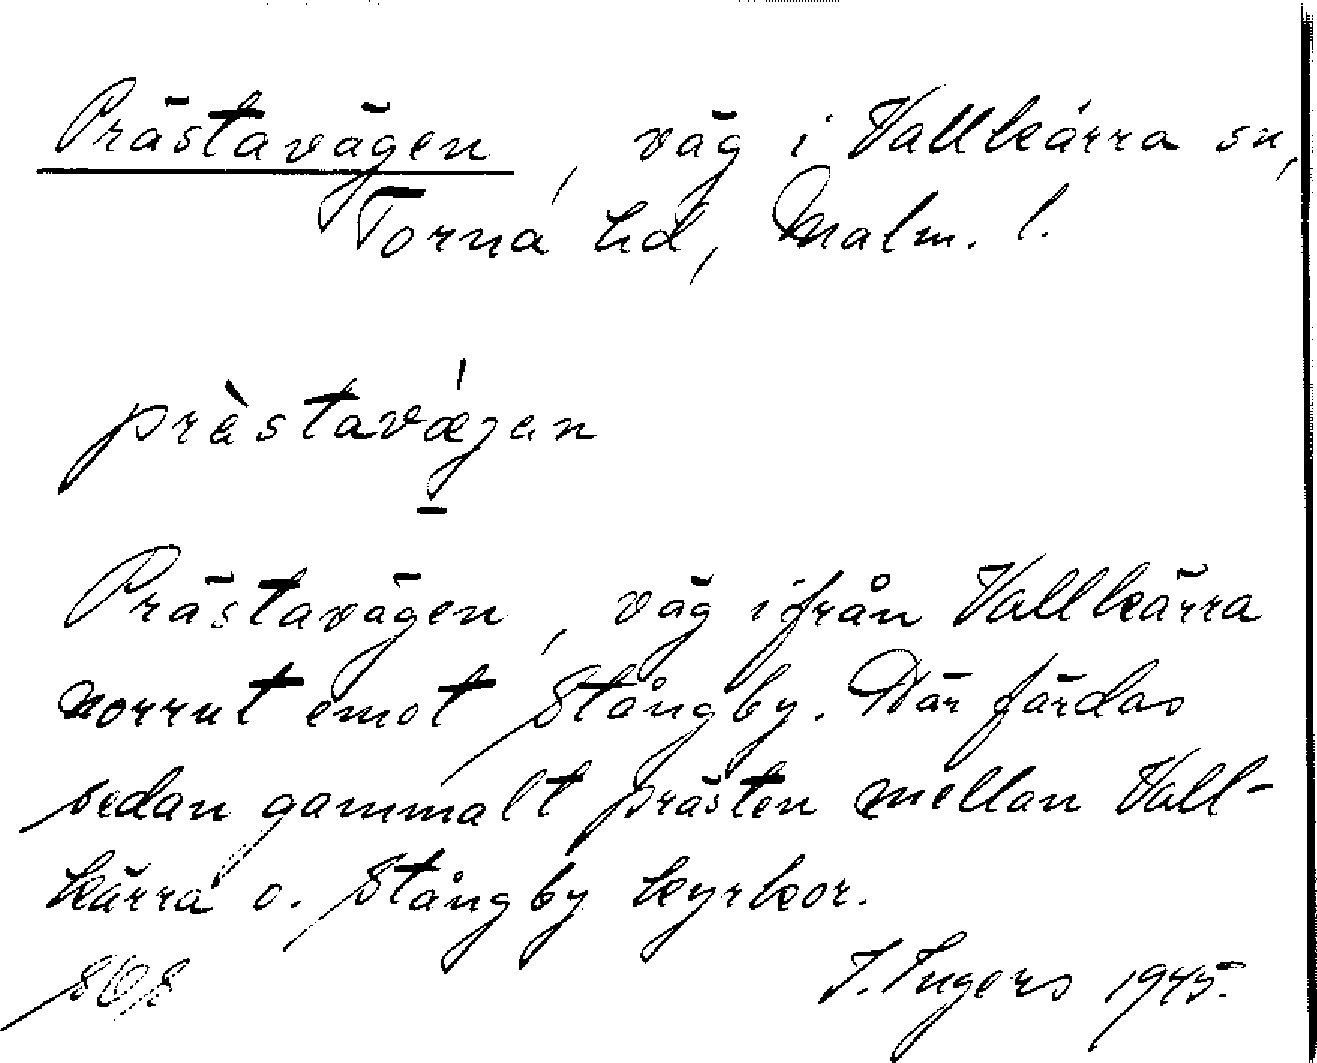 Prästavägen, väg i Vallkärra sn,
Torna hd, Malm. l.
prὰstavǽgen
Prästavägen, väg ifrån Vallkärra
norrut emot Stångby. Där färdas
sedan gammalt prästen mellan Vall-
kärra o. Stångby kyrkor.
I. Ingers 1945.